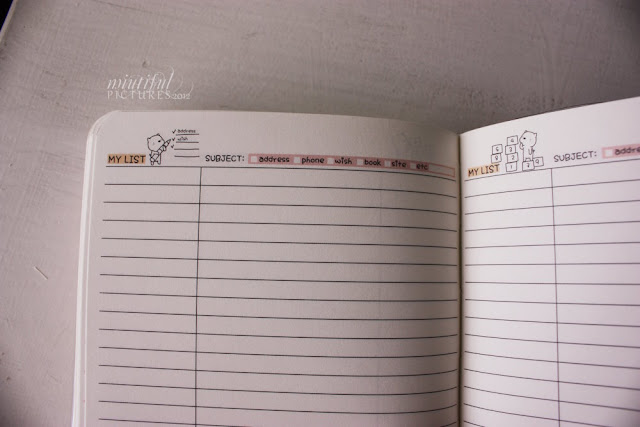 miutiful
PICTURES 2012
address
wish
MY LIST
SUBJECT: address phone wish book site etc
MY LIST
SUBJECT: addre